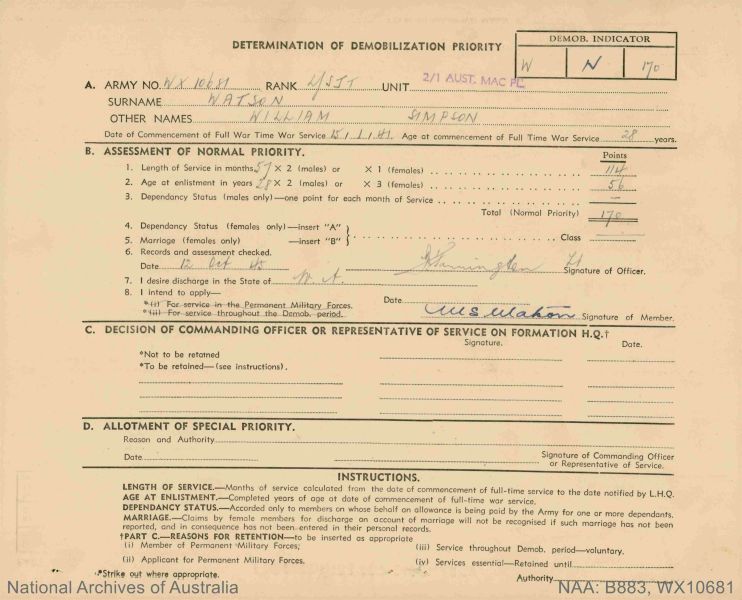 DETERMINATION OF DEMOBILIZATION PRIORITY
DEMOB. INDICATOR
W N 170
A. ARMY NO. WX 10681 RANK L/SJT UNIT 2/1 AUST. MAC PL.
SURNAME WATSON
OTHER NAMES WILLIAM SIMPSON
Date of Commencement of Full War Time War Service 15/1/41. Age at commencement of Full Time War Service 28 years.
B. ASSESSMENT OF NORMAL PRIORITY. Points
1. Length of Service in months 57 × 2 (males) or × 1 (females) 114
2. Age at enlistment in years 28 × 2 (males) or × 3 (females) 56
3. Dependancy Status (males only)—one point for each month of Service —
Total (Normal Priority) 170
4. Dependancy Status (females only)—insert "A"
5. Marriage (females only) —insert "B" Class
6. Records and assessment checked.
Date 12 Oct 45 Lt Signature of Officer.
7. I desire discharge in the State of W.A.
8. I intend to apply— Date
*(i) For service in the Permanent Military Forces.
*(ii) For service throughout the Demob. period. Signature of Member.
C. DECISION OF COMMANDING OFFICER OR REPRESENTATIVE OF SERVICE ON FORMATION H.Q.†
Signature. Date.
*Not to be retained
*To be retained—(see instructions).
D. ALLOTMENT OF SPECIAL PRIORITY.
Reason and Authority
Date Signature of Commanding Officer
or Representative of Service.
INSTRUCTIONS.
LENGTH OF SERVICE.—Months of service calculated from the date of commencement of full-time service to the date notified by L.H.Q.
AGE AT ENLISTMENT.—Completed years of age at date of commencement of full-time war service.
DEPENDANCY STATUS.—Accorded only to members on whose behalf an allowance is being paid by the Army for one or more dependants.
MARRIAGE.—Claims by female members for discharge on account of marriage will not be recognised if such marriage has not been
reported, and in consequence has not been entered in their personal records.
†PART C.—REASONS FOR RETENTION—to be inserted as appropriate
(i) Member of Permanent Military Forces; (iii) Service throughout Demob. period—voluntary.
(ii) Applicant for Permanent Military Forces. (iv) Services essential—Retained until
*Strike out where appropriate. Authority
National Archives of Australia NAA: B883, WX10681